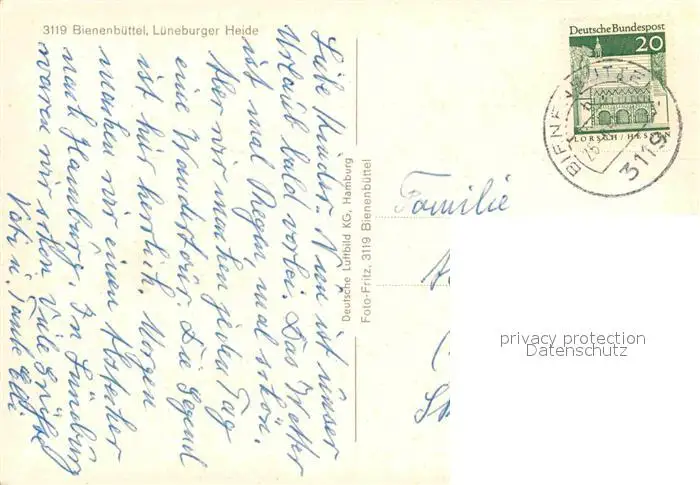 3119 Bienenbüttel, Lüneburger Heide
Liebe Kinder. Nun ist unser
Urlaub bald vorbei. Das Wetter
ist mal Regen, mal schön.
Aber wir machen jeden Tag
eine Wandertour. Die Gegend
ist hier herrlich. Morgen
machen wir einen Abstecher
nach Hamburg. In Lüneburg
waren wir schon. Viele Grüße
u. Tante Elli
Deutsche Luftbild KG, Hamburg
Foto-Fritz, 3119 Bienenbüttel
Deutsche Bundespost
20
LORSCH / HESSEN
3119
Familie
privacy protection
Datenschutz